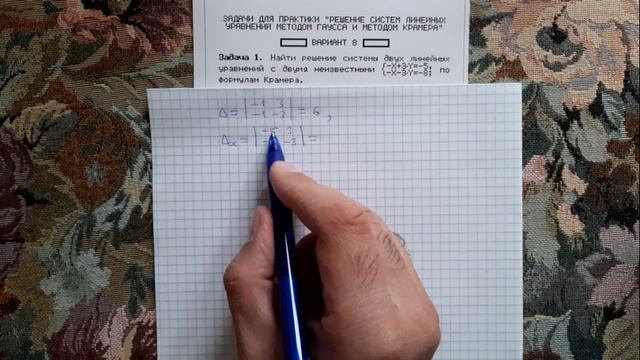 ЗАДАЧИ ДЛЯ ПРАКТИКИ "РЕШЕНИЕ СИСТЕМ ЛИНЕЙНЫХ
УРАВНЕНИЙ МЕТОДОМ ГАУССА И МЕТОДОМ КРАМЕРА"
ВАРИАНТ 8
Задача 1. Найти решение системы двух линейных
уравнений с двумя неизвестными {-X+3·Y=-5, по
{-X-3·Y=-8;
формулам Крамера.
Δ = |-1 3| = 6 ,
|-1 -3|
Δx = |-5 3| =
-3|